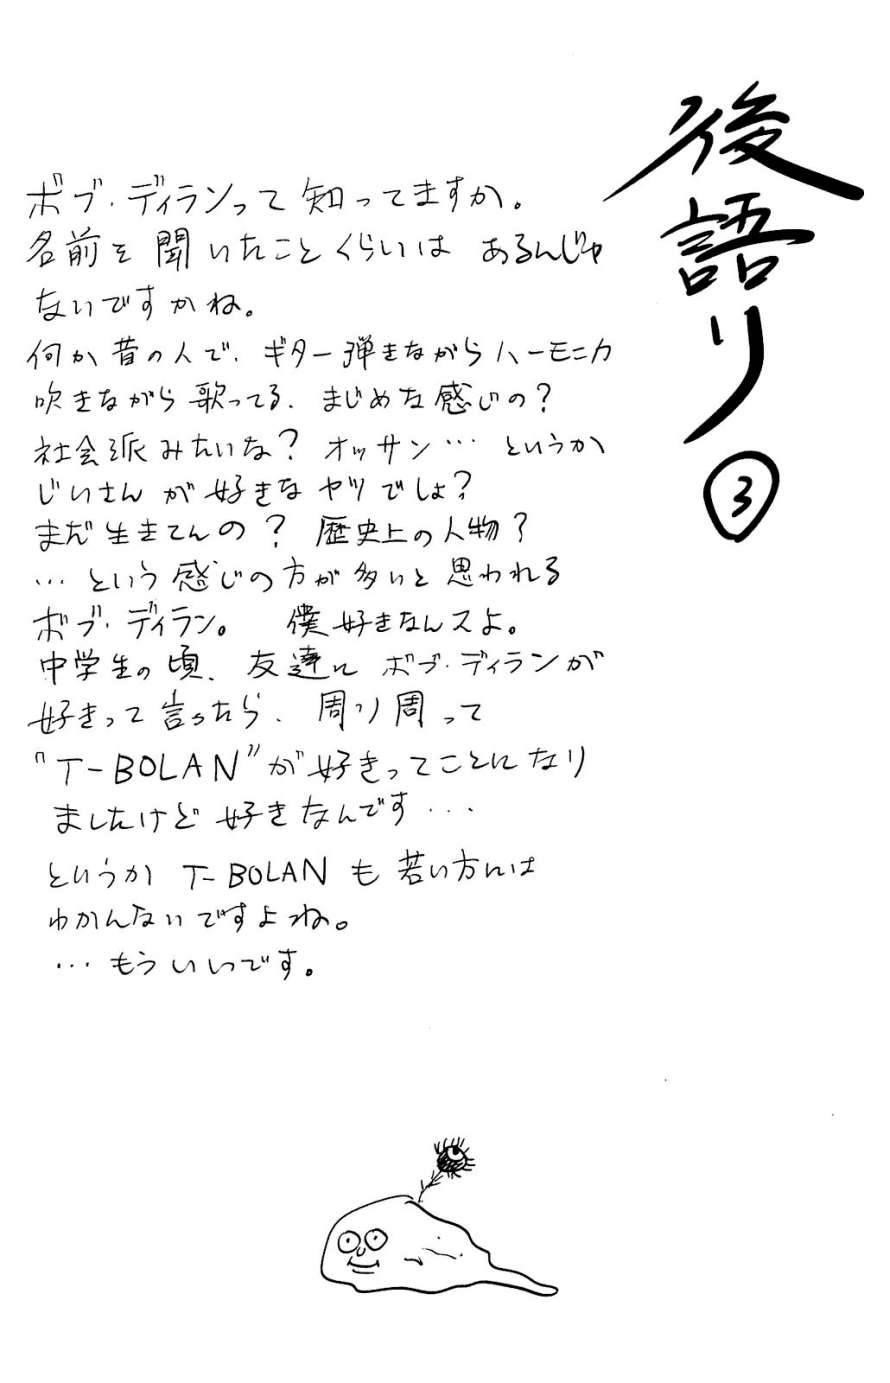 後語り
③
ボブ・ディランって知ってますか。
名前を聞いたことくらいはあるんじゃ
ないですかね。
何か昔の人で、ギター弾きながらハーモニカ
吹きながら歌ってる、まじめな感じの?
社会派みたいな? オッサン…というか
じいさんが好きなヤツでしょ?
まだ生きてんの? 歴史上の人物?
…という感じの方が多いと思われる
ボブ・ディラン。 僕好きなんスよ。
中学生の頃、友達にボブ・ディランが
好きって言ったら、周り周って
"T-BOLAN"が好きってことになり
ましたけど好きなんです…
というか T-BOLAN も若い方には
わかんないですよね。
…もういいです。